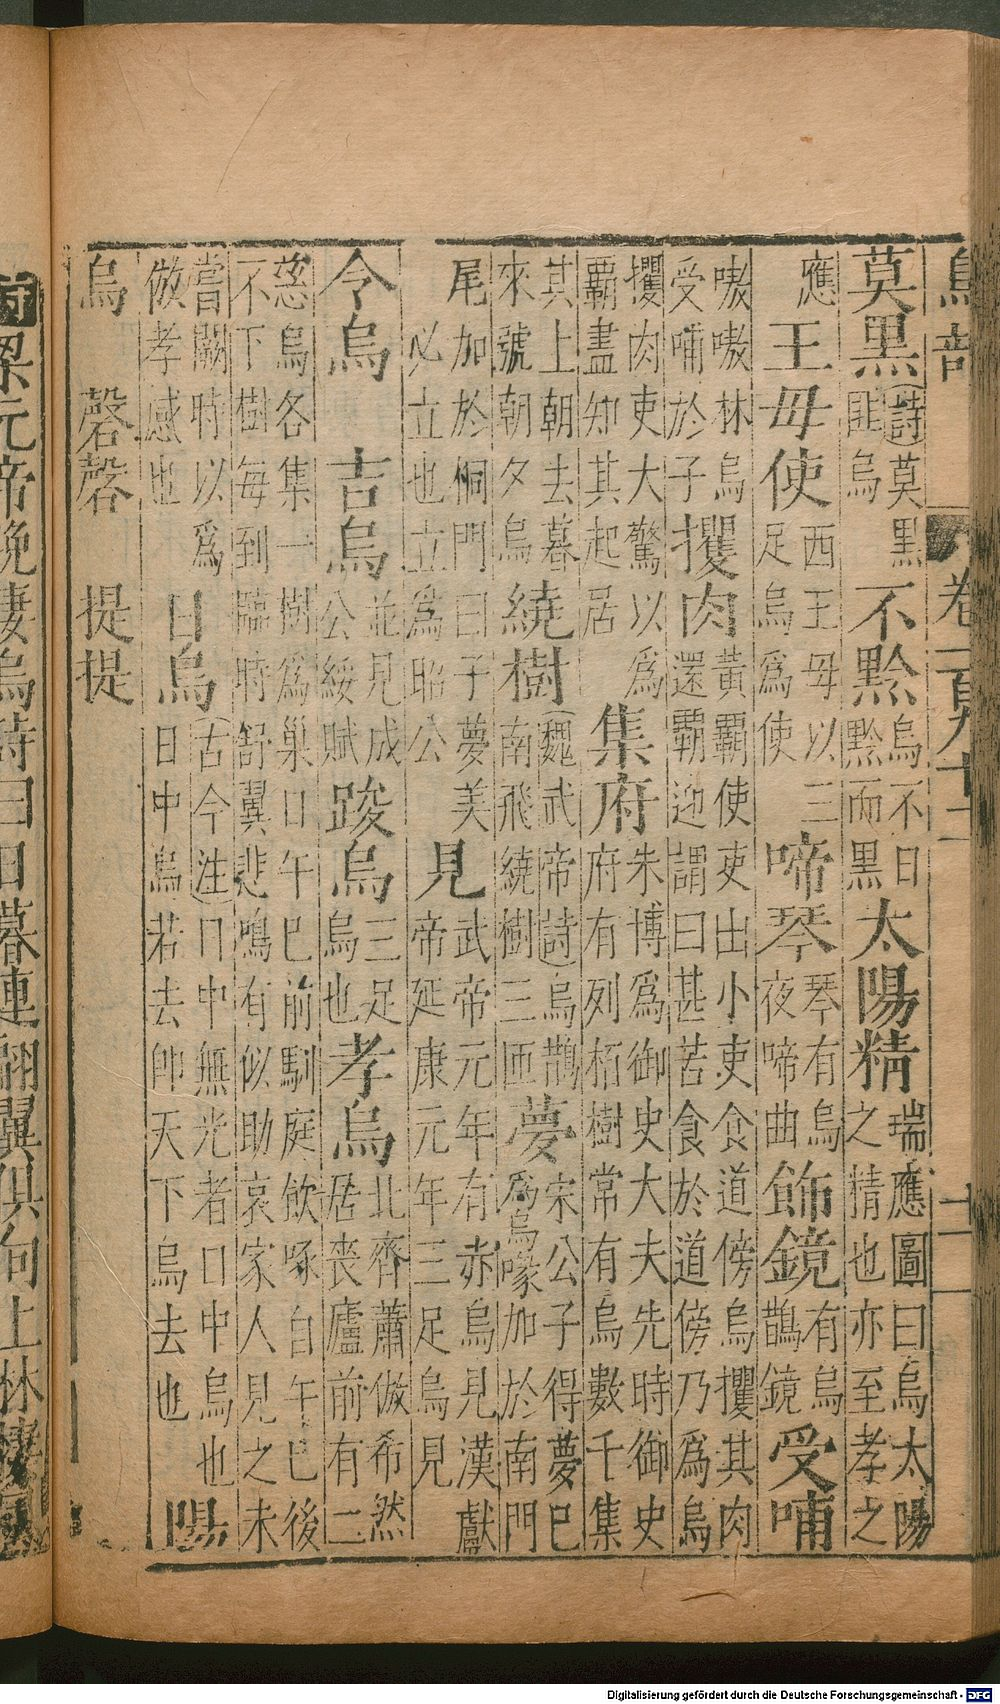 烏部　卷一百九十二　十二
莫黑(詩)莫黑匪烏不黔烏不日黔而黑太陽精瑞應圖曰烏太陽之精也亦至孝之
應王母使西王母以三足烏爲使啼琴琴有烏夜啼曲飾鏡有烏鵲鏡受哺
嗷嗷林烏受哺於子攫肉黃覇使吏出小吏食道傍烏攫其肉還覇迎謂曰甚苦食於道傍乃爲烏
攫肉吏大驚以爲覇盡知其起居集府朱博爲御史大夫先時御史府有列栢樹常有烏數千集
其上朝去暮來號朝夕烏繞樹(魏武帝詩)烏鵲南飛繞樹三匝夢宋公子得夢巳爲烏喙加於南門
尾加於桐門曰子夢美必立也立爲昭公見武帝元年有赤烏見漢獻帝延康元年三足烏見
令烏　吉烏並見成公綏賦踆烏三足烏也孝烏北齊蕭倣希然居喪廬前有二
慈烏各集一樹爲巢口午巳前馴庭飲啄自午巳後不下樹每到臨時舒翼悲鳴有似助哀家人見之未
嘗闕時以爲倣孝感也日烏(古今注)日中無光者日中烏也日中烏若去帥天下烏去也陽
烏　磬磬　提提
詩梁元帝晩棲烏詩曰日暮連翩翼俱向上林棲
Digitalisierung gefördert durch die Deutsche Forschungsgemeinschaft - DFG